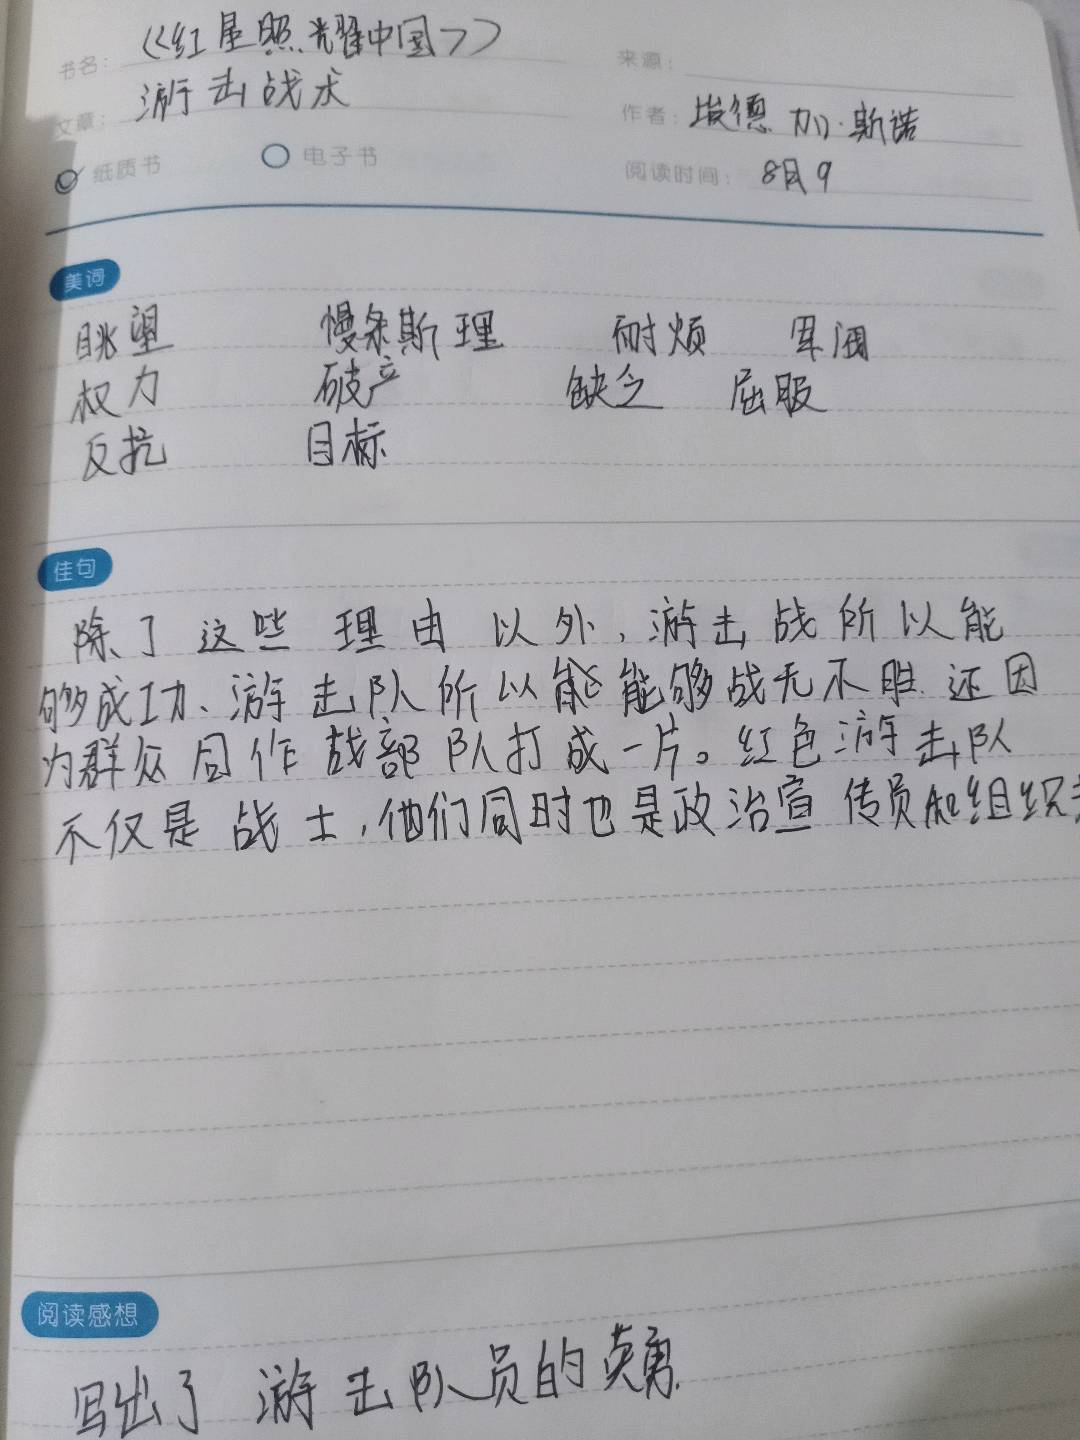 书名：《红星照耀中国》
来源：
文章：游击战术
作者：埃德加·斯诺
纸质书 电子书
阅读时间：8月9
美词
眺望 慢条斯理 耐烦 军阀
权力 破产 缺乏 屈服
反抗 目标
佳句
除了这些理由以外，游击战所以能
够成功、游击队所以能够战无不胜.还因
为群众同作战部队打成一片。红色游击队
不仅是战士，他们同时也是政治宣传员和组织
阅读感想
写出了游击队员的英勇.